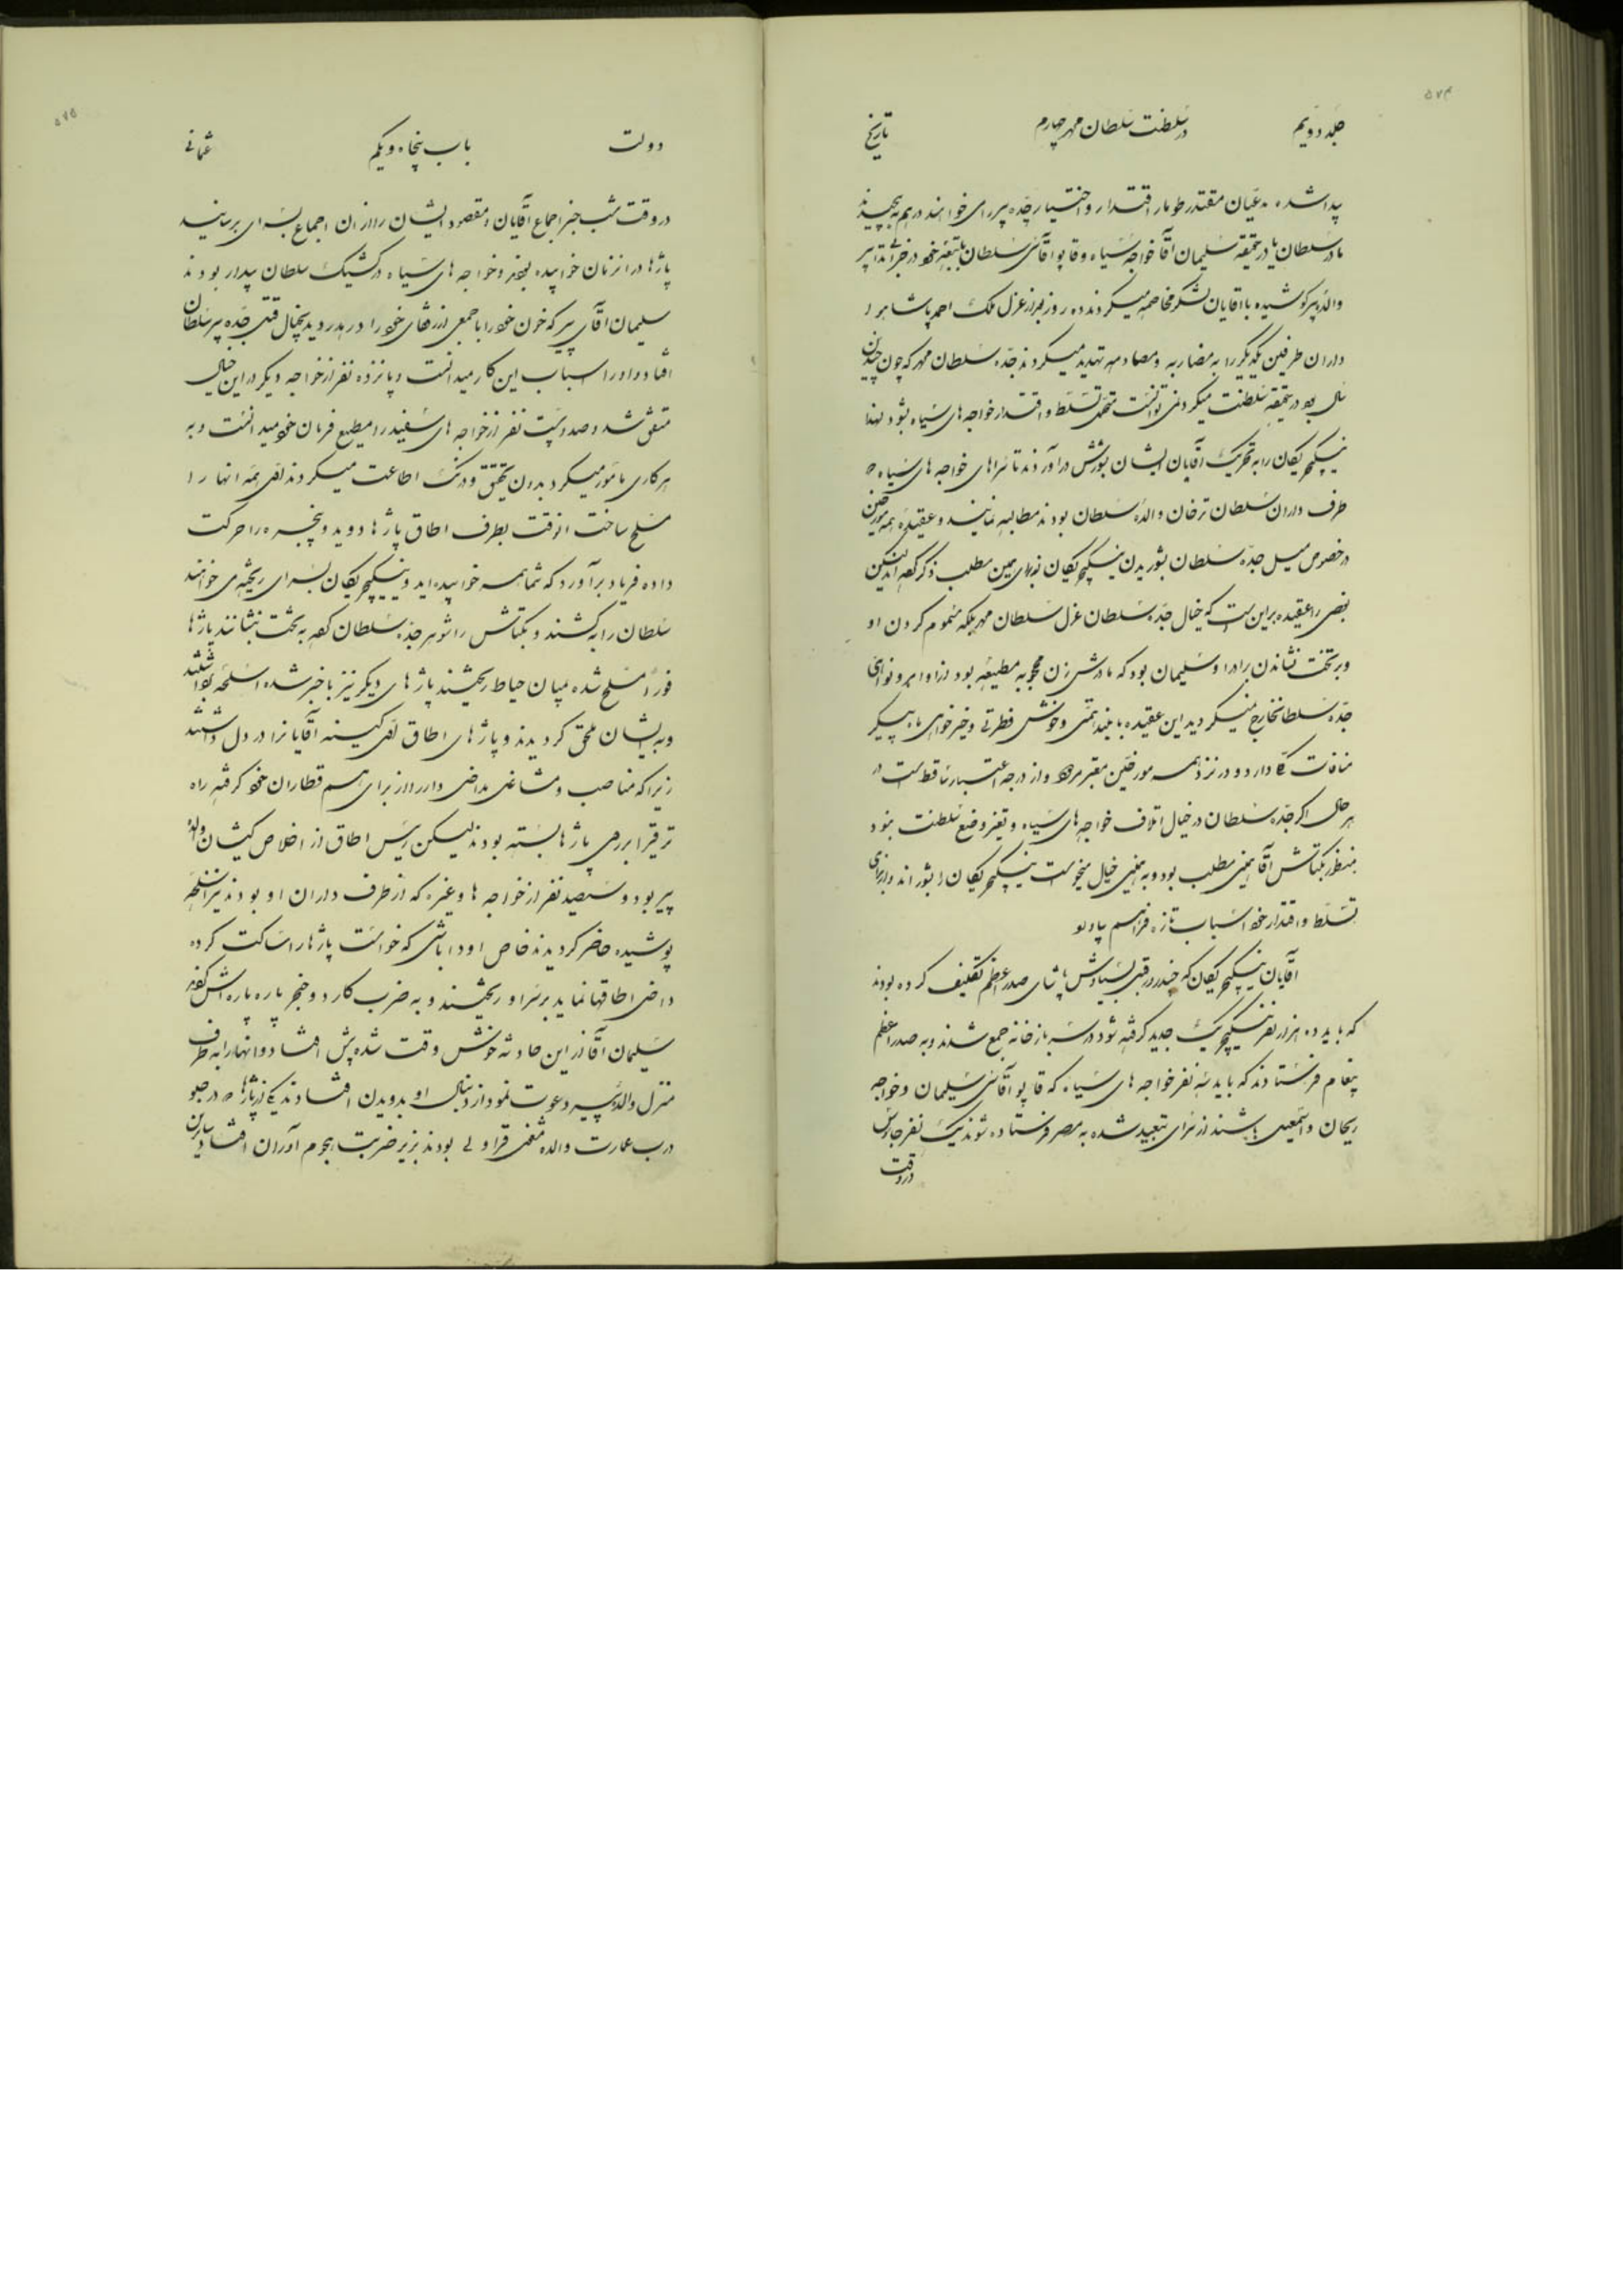 ۵۷۴
جلد دویم در سلطنت سلطان محمد چهارم تاریخ
پیدا شده مدعیان مقتدر طومار اقتدار و اختیار جدّه پیر رای خواهند درهم به پیچیدند
مادر سلطان یا در حقیقه سلیمان آقا خواجه سیاه و قاپو آقاسی سلطان بلتیغه خود در خرابی تدابیر
والده پیر کوشیده با آقایان لشکر مخاصمه میکردند ده روز بعد از عزل ملک احمد پاشا هر
داران طرفین یکدیگر را به مضاربه و مصادمه تهدید میکردند جدّه سلطان محمد که چون چندین
سال بود در حقیقه سلطنت میکرد نمی توانست متحمل تسلط و اقتدار خواجه های سیاه بشود لهذا
ینیکچریکان را به تحریک آقایان ایشان بشورش درآوردند تا سرهای خواجه های سیاه
طرف داران سلطان ترخان والده سلطان بودند مطالبه نمایند و عقیده همه مورخین
در خصوص میل جدّه سلطان بشوریدن ینیکچریکان نوبرای همین مطلب ذکر کفه اند لیکن
بعضی را عقیده بر این است که خیال جدّه سلطان عزل سلطان محمد بلکه مسموم کردن او
و بر تخت نشاندن برادر او سلیمان بود که مادرش زن محجوبه مطیعه بود از اوامر و نواهی
جدّه سلطان خارج نمیکردید این عقیده با بلند همتی و خوش فطرتی و خیر خواهی ماه پیکر
منافات دارد و در نزد همه مورخین معتبر مردود و از درجه اعتبار ساقط است در
هر حال اکر جدّه سلطان در خیال اتلاف خواجه های سیاه و تغیر وضع سلطنت نبود
منظور بکتاش آقا همین مطلب بود و به همین خیال میخواست ینیکچریکان را بشوراند و از برای
تسلط و اقتدار خود اسباب تازه فراهم بیاورد
آقایان ینیکچریکان که چندی قبل بسیاوش پاشای صدر اعظم تکلیف کرده بودند
که باید ده هزار نفر ینیکچریک جدید کرفته شود در سربازخانه جمع شدند و به صدر اعظم
پیغام فرستادند که باید سه نفر خواجه های سیاه که قاپو آقاسی سلیمان و خواجه
ریحان و اسمعیل باشند از سرای تبعید شده به مصر فرستاده شوند یک نفر چاوش
در وقت
۵۷۵
دولت باب پنجاه و یکم عثمانی
در وقت شب خبر اجماع آقایان و مقصود ایشان را از آن اجماع بسرای برسانید
پاژها در آنزمان خوابیده بودند و خواجه های سیاه در کشیک سلطان بیدار بودند
سلیمان آقای پیر که خون خود را با جمعی از رفقای خود را در هدر دید بخیال قتل جدّه پیر سلطان
افتاد و او را اسباب این کار میدانست و پانزده نفر از خواجه دیکر در این خیال
متفق شد و صد و بیست نفر از خواجه های سفید را مطیع فرمان خود میدانست و به
هر کاری مأمور میکرد بدون تحقق و درنک اطاعت میکردند لهذا همه آنها را
مسلح ساخت آنوقت بطرف اطاق پاژها دوید و پنجره را حرکت
داده فریاد برآورد که شما همه خوابیده اید و ینیکچریکان بسرای ریخته می خواهند
سلطان را به کشند و بکتاش را شوهر جدّه سلطان کفه به تخت بنشانند پاژها
فوراً مسلح شده بمیان حیاط ریختند پاژهای دیکر نیز باخبر شده اسلحه برداشتند
و به ایشان ملحق کردیدند و پاژهای اطاق کینه آقایان را در دل داشتند
زیرا که مناصب و مشاغل مداخل دار را از برای هم قطاران خود کرفته راه
ترقی را بر روی پاژها بسته بودند لیکن رئیس اطاق از اخلاص کیشان والده
پیر بود و سیصد نفر از خواجه ها و غیره که از طرف داران او بودند نیز اسلحه
پوشیده حاضر کردیدند خاص اودا باشی که خواست پاژها را ساکت کرده
داخل اطاقها نماید بر سر او ریختند و به ضرب کارد و خنجر پاره پاره اش کفه
سلیمان آقا از این حادثه خوش وقت شده پیش افتاد و آنها را به طرف
منزل والده پیر دعوت نمود از دنبال او بدویدن افتادند یکی از پاژها در جلو
درب عمارت والده مشغول قراولی بودند بزیر ضربت هجوم آوران افتاد